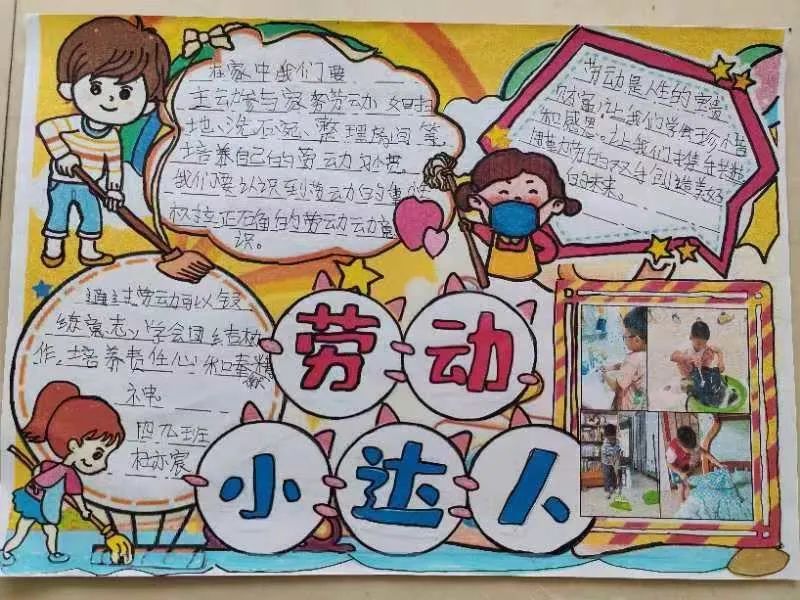 在家中我们要
主动参与家务劳动,如扫
地、洗碗、整理房间等,
培养自己的劳动
我们要认识到劳动的重
正确的劳动
识。
劳动是人生的宝贵
财富,让我们学会珍惜
和感恩。让我们
的双手创造美好
的未来。
通过劳动可以锻
炼意志,学会团结协
作,培养责任心和奉献精
神
四九班
杜亦宸
劳动
小达人